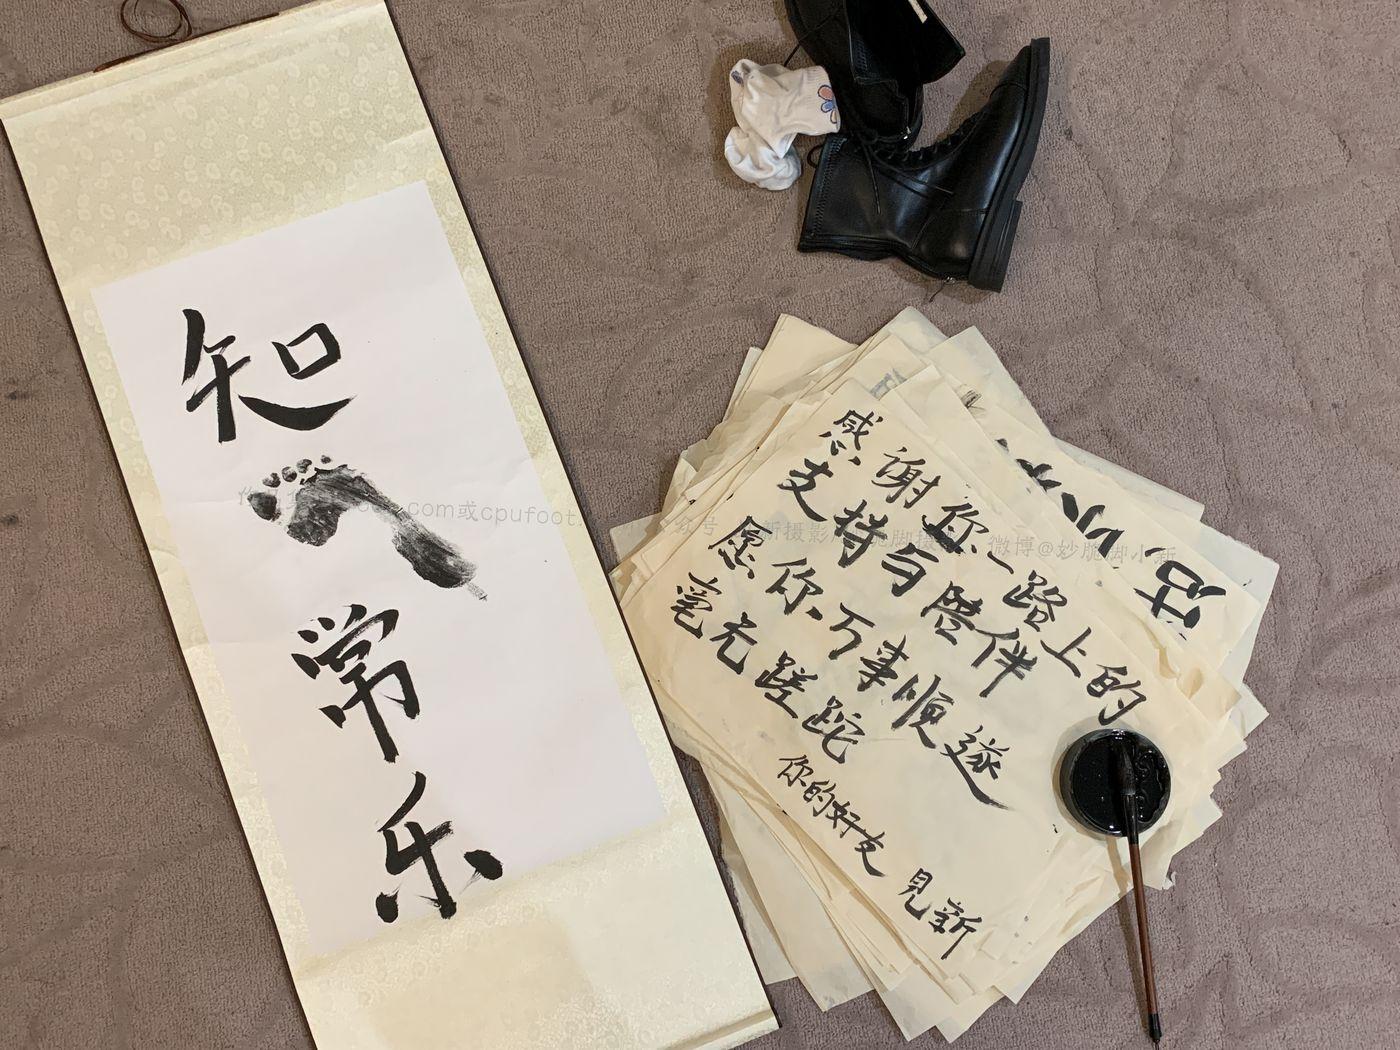 知
常
乐
感谢你一路上的
支持与陪伴
愿你万事顺遂
毫无蹉跎
你的好友 见新
com或cpufoot.
微博@妙脆脚小新